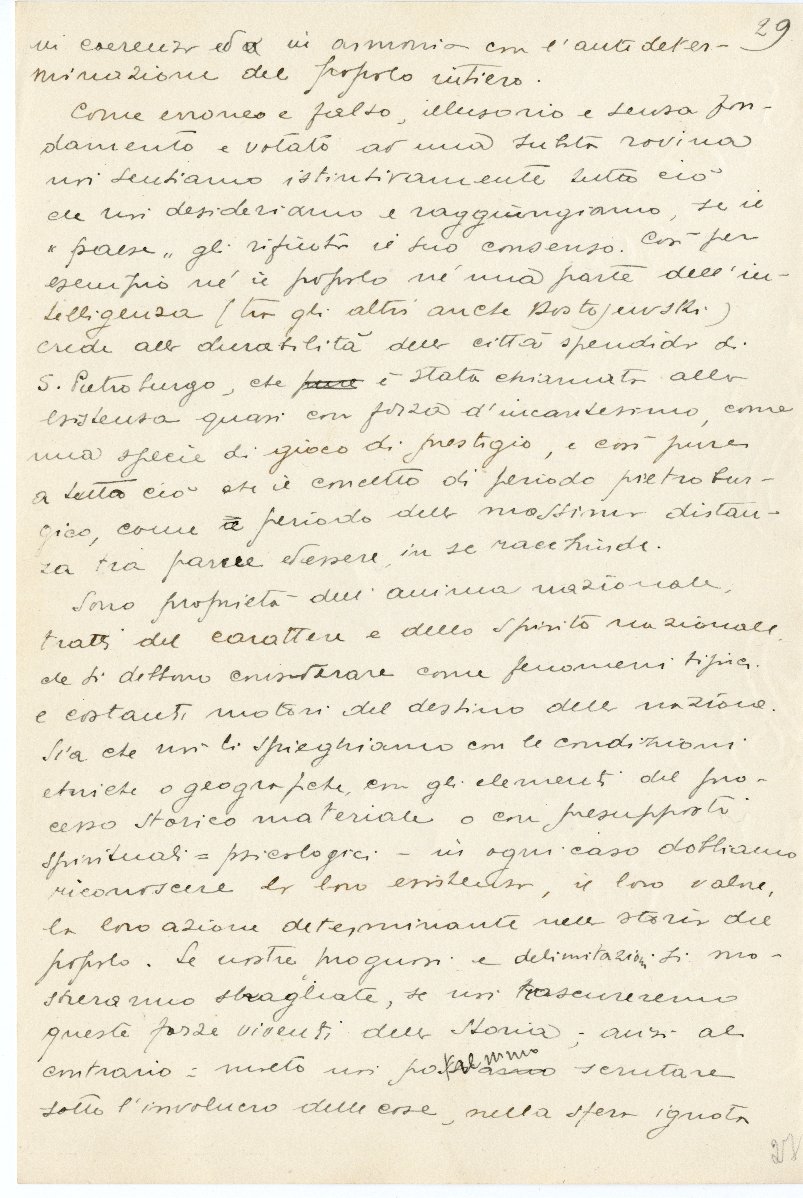 29
in coerenza ed in armonia con l'autodeter-
minazione del popolo intiero.
Come erroneo e falso, illusorio e senza fon-
damento e votato ad una subita rovina
noi sentiamo istintivamente tutto ciò
che noi desideriamo e raggiungiamo, se il
"paese" gli rifiuta il suo consenso. Così per
esempio né il popolo né una parte dell'in-
telligenza (tra gli altri anche Dostojewski)
crede alla durabilità della città splendida di
S. Pietroburgo, che pure è stata chiamata alla
esistenza quasi con forza d'incantesimo, come
una specie di gioco di prestigio, e così pure
a tutto ciò che il concetto di periodo pietrobur-
gico, come il periodo della massima distan-
za tra parere ed essere, in se racchiude.
Sono proprietà dell'anima nazionale,
tratti del carattere e dello spirito nazionale,
che si debbono considerare come fenomeni tipici
e costanti motori del destino della nazione.
Sia che noi li spieghiamo con le condizioni
etniche o geografiche, con gli elementi del pro-
cesso storico materiale o con presupposti
spirituali = psicologici - in ogni caso dobbiamo
riconoscere la loro esistenza, il loro valore,
la loro azione determinante nella storia del
popolo. Le nostre prognosi e delimitazioni si mo-
streranno sbagliate, se noi trascureremo
queste forze viventi della storia; anzi al
contrario = noi scrutare
sotto l'involucro delle cose, nella sfera ignota